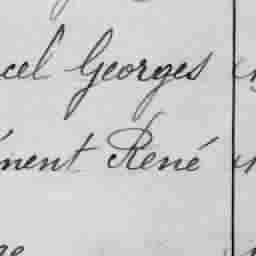 cel Georges
ment René